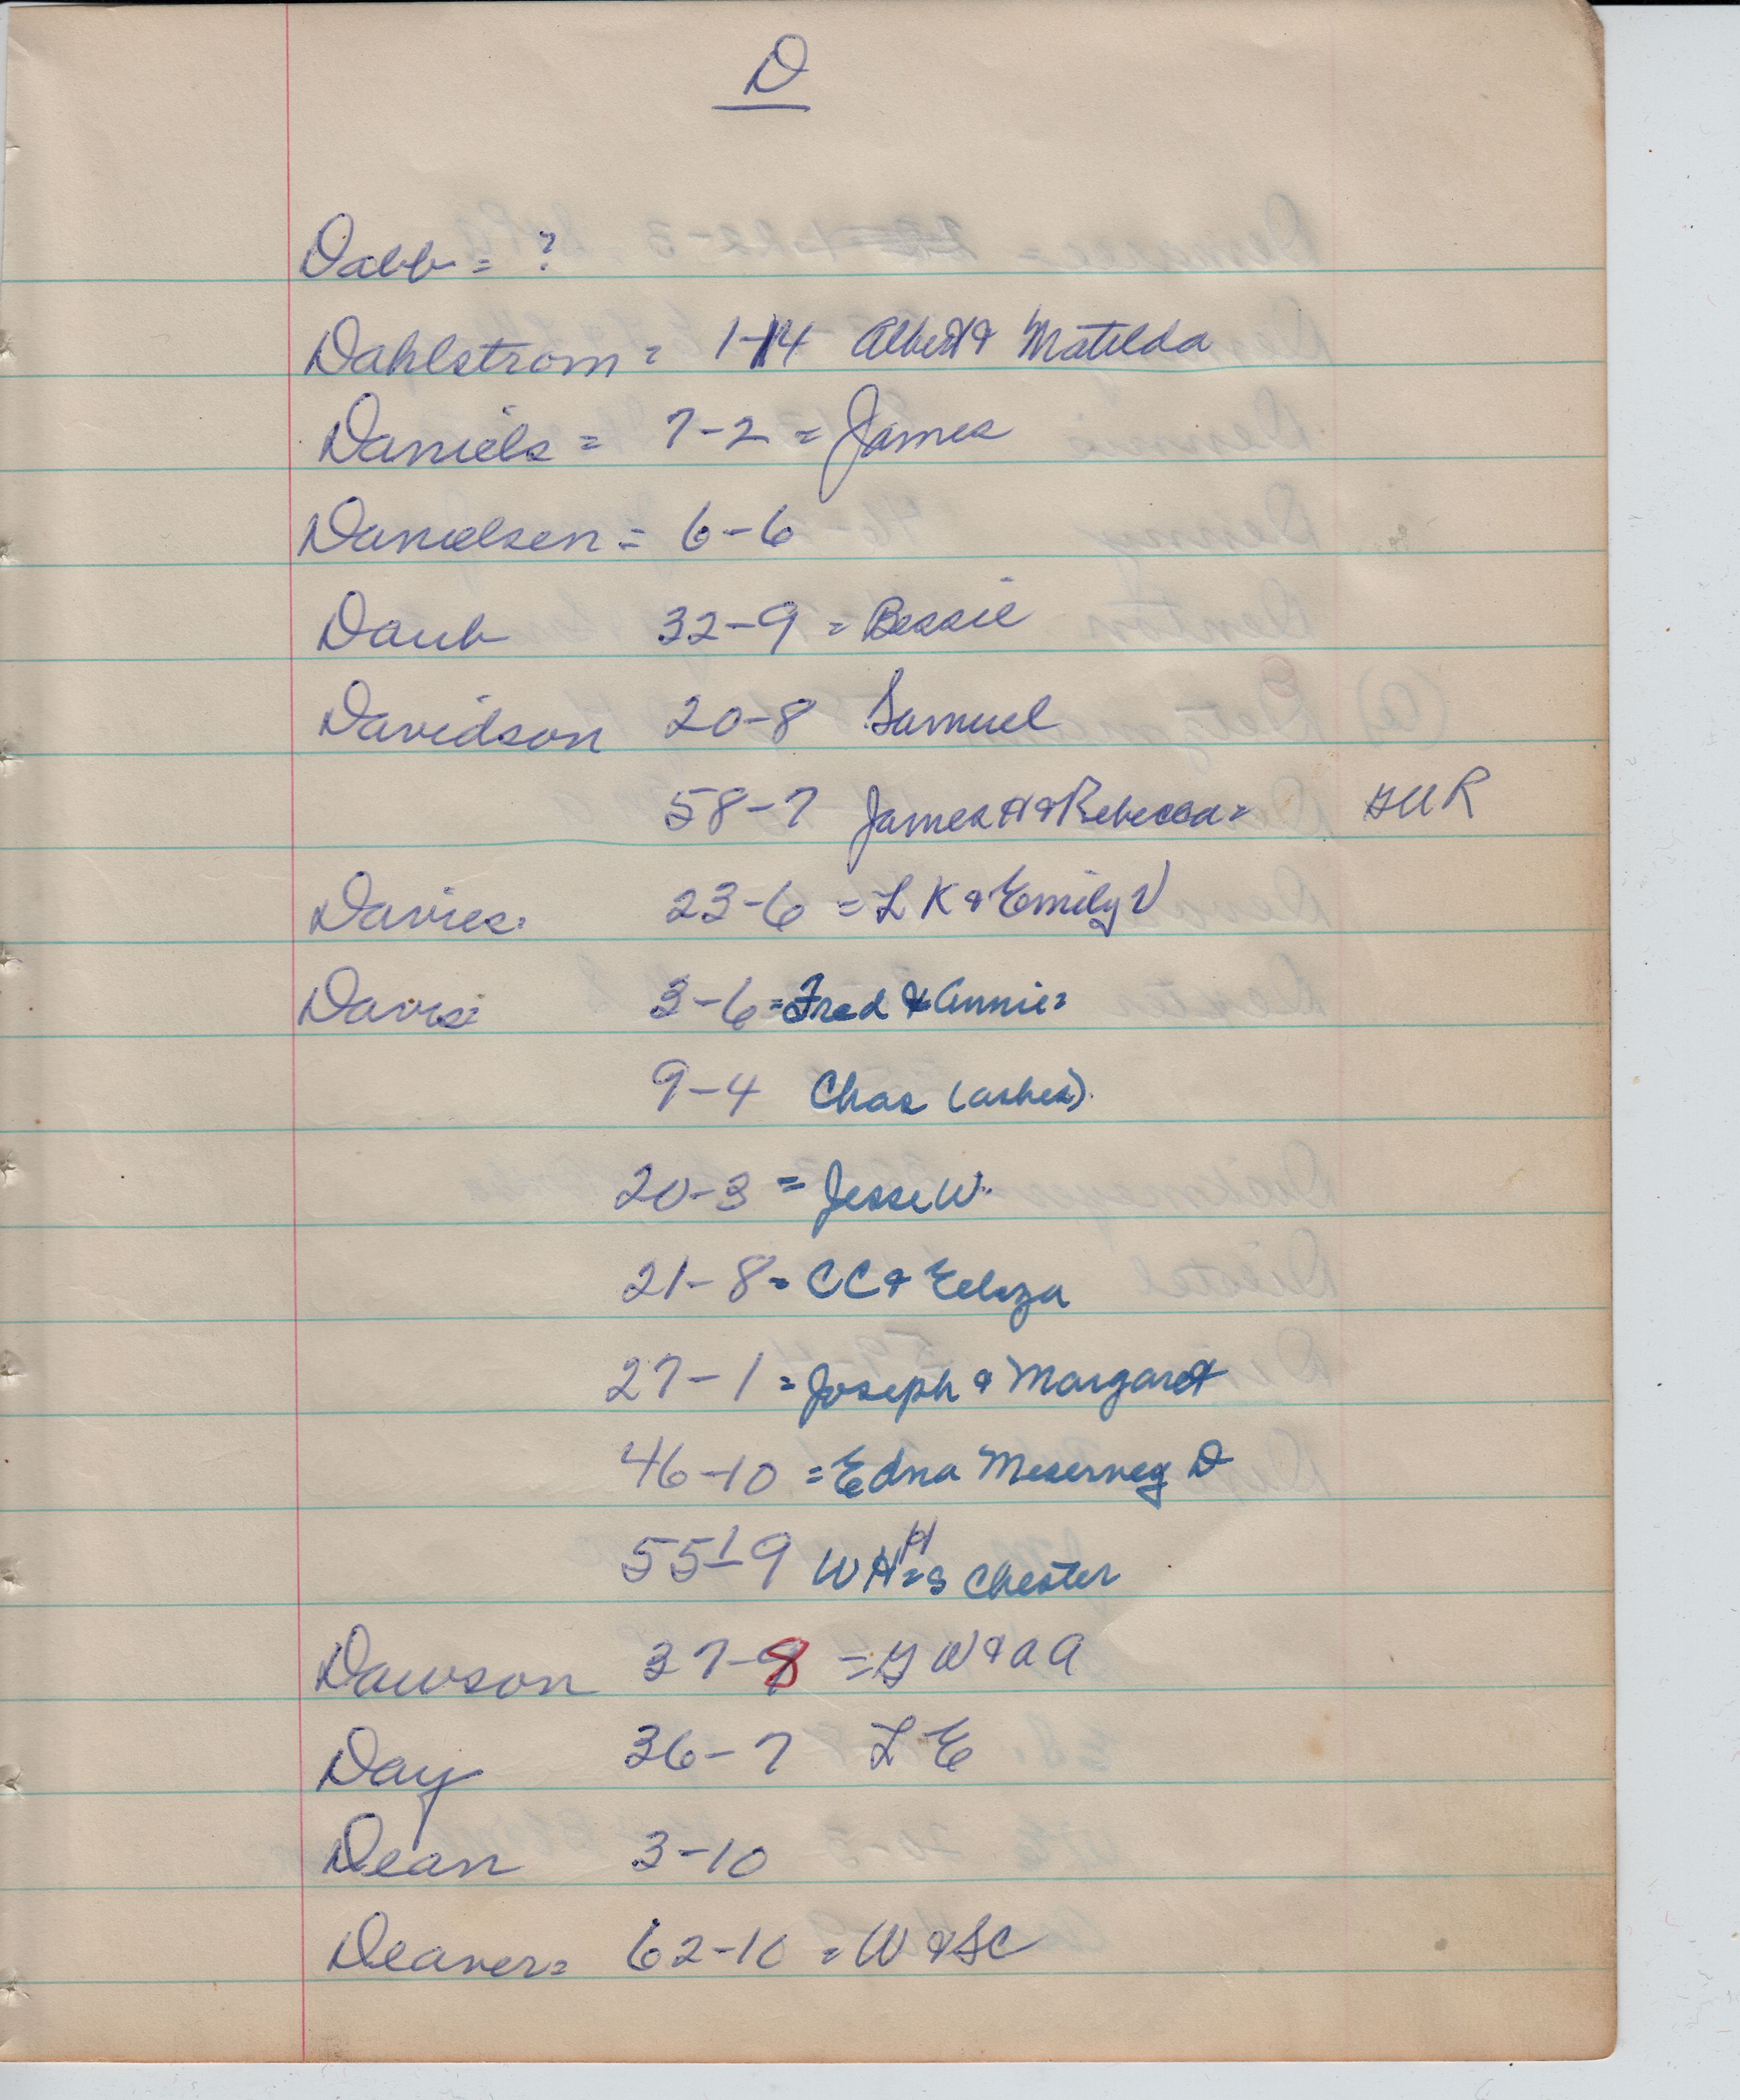 D
Dabb = ?
Dahlstrom = 1-14 Albert & Matilda
Daniels = 7-2 = James
Danielsen = 6-6
Daub 32-9 = Bessie
Davidson 20-8 Samuel
58-7 James H & Rebecca = GUR
Davies. 23-6 = L K & Emily V
Davis 3-6 = Fred & Annie =
9-4 Chas (ashes).
20-3 = Jesse W.
21-8 = CC & Eliza
27-1 = Joseph & Margaret
46-10 = Edna Meservey D
55-9 W H = Chester
Dawson 37-8 = G W & A A
Day 36-7 L E
Dean 3-10
Deaver = 62-10 = W & SC